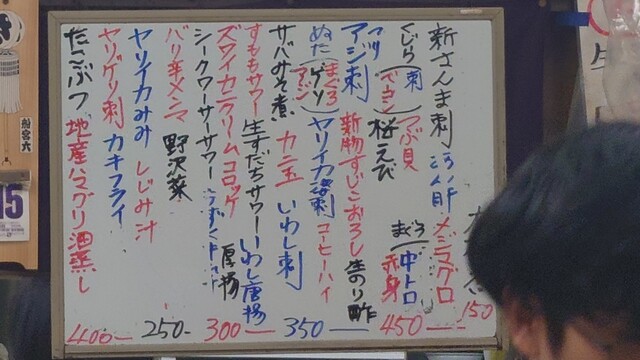 新さんま刺
メジマグロ
150
くじら(刺
ベーコン
つぶ貝
まぐろ(中トロ
赤身
450
桜えび
アジ刺
新物すじこおろし
生のり酢
ぬた(まぐろ
ゲソ
アジ
ヤリイカ姿刺
コーヒーハイ
350
サバみそ煮
カニ玉
いわし刺
すももサワー
生すだちサワー
いわし唐揚
ズワイカニクリームコロッケ
厚揚
300
シークワーサーサワー
バリ辛メンマ
野沢菜
250
ヤリイカみみ
しじみ汁
ヤリゲソ刺
カキフライ
たこぶつ
地産ハマグリ酒蒸し
400
15